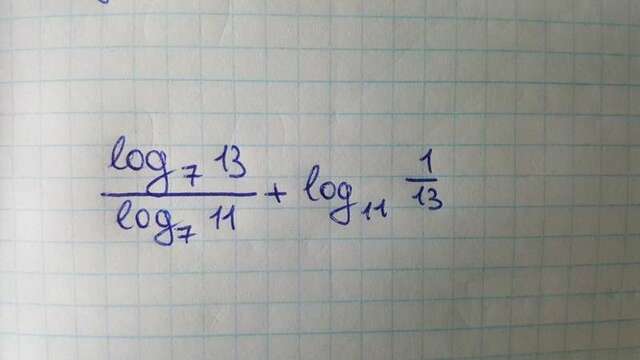 log₇ 13 / log₇ 11 + log₁₁ 1/13